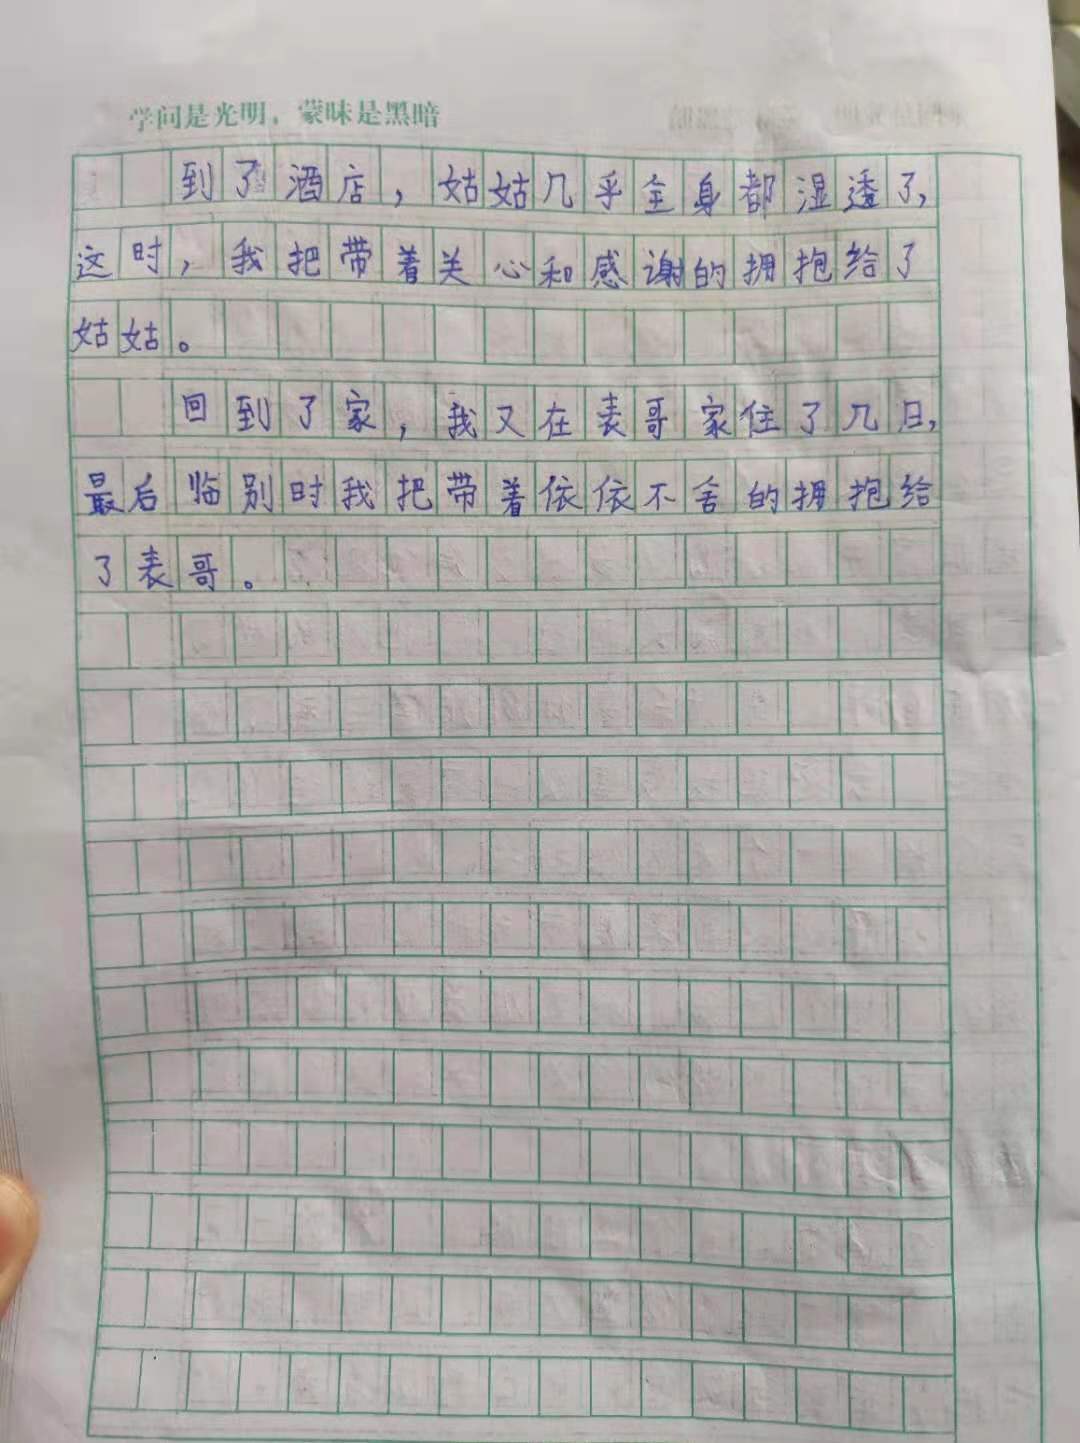 学问是光明，蒙昧是黑暗
到了酒店，姑姑几乎全身都湿透了，
这时，我把带着关心和感谢的拥抱给了
姑姑。
回到了家，我又在表哥家住了几日，
最后临别时我把带着依依不舍的拥抱给
了表哥。